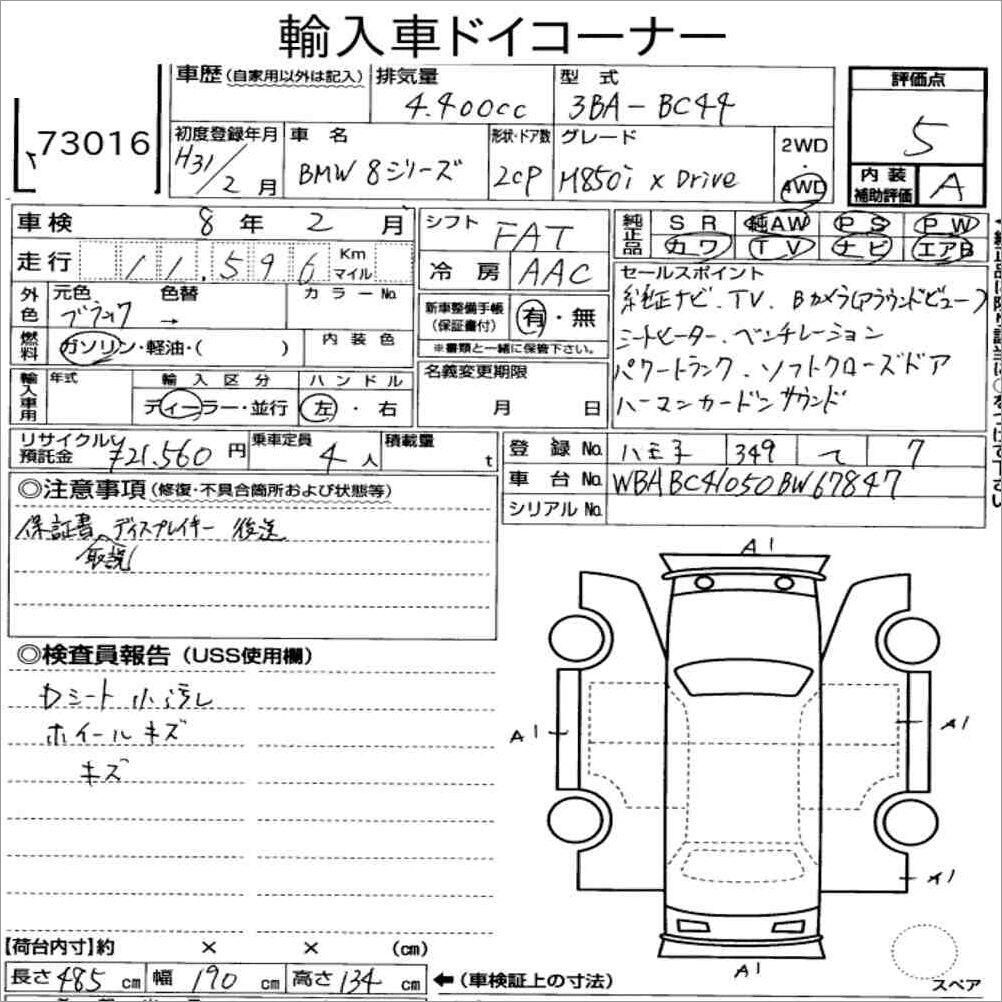 輸入車ドイコーナー
73016
車歴(自家用以外は記入) 排気量 4.400cc 型式 3BA-BC44
評価点 5
内装補助評価 A
初度登録年月 H31/2月 車名 BMW 8シリーズ 形状・ドア数 2CP グレード M850i xDrive 2WD・4WD
車検 8年2月 シフト FAT
走行 11.596 Km マイル 冷房 AAC
純正品 SR 純AW PS PW
カワ TV ナビ エアB
外色 元色 ブラック 色替 → カラーNo.
新車整備手帳(保証書付) 有・無
※書類と一緒に保管下さい。
燃料 ガソリン・軽油・( ) 内装色
セールスポイント
純正ナビ.TV.Bカメラ(アラウンドビュー)
シートヒーター.ベンチレーション
パワートランク.ソフトクローズドア
ハーマンカードンサウンド
輸入車用 年式 輸入区分 ディーラー・並行 ハンドル 左・右
名義変更期限 月 日
リサイクル預託金 ¥21.560円 乗車定員 4人 積載量 t
登録No. 八王子 349 て 7
車台No. WBABC41050BW67847
シリアルNo.
◎注意事項(修復・不具合箇所および状態等)
保証書、ディスプレイキー 後送
取説
◎検査員報告(USS使用欄)
Dシート小汚レ
ホイールキズ
キズ
A1
A1
A1
A1
A1
【荷台内寸】約 × × (cm)
長さ485cm 幅190cm 高さ134cm ←(車検証上の寸法)
スペア